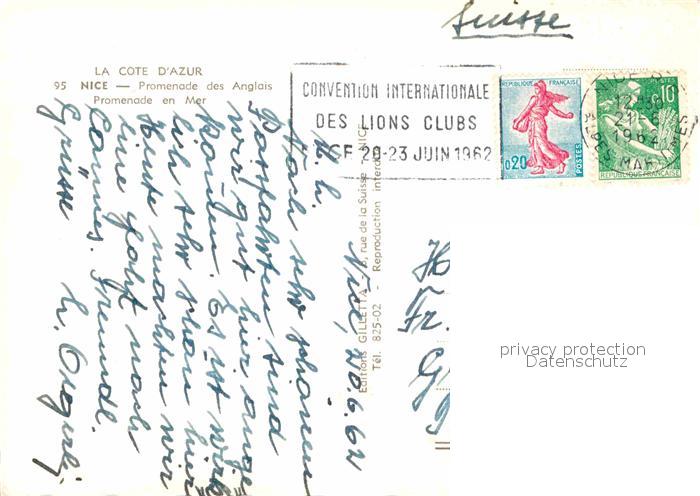 Suisse
LA COTE D'AZUR
95 NICE — Promenade des Anglais
Promenade en Mer
CONVENTION INTERNATIONALE
DES LIONS CLUBS
20-23 JUIN 1962
REPUBLIQUE FRANÇAISE
0,20
POSTES
POSTES
10
REPUBLIQUE FRANÇAISE
1962
Editions GILLETTA - rue de la Suisse - NICE
Tél. 825-02 - Reproduction interdite
Nice, 20.6.62
Nach sehr schönen
Passfahrten sind
wir gut hier ange-
kommen. Es ist wirk-
lich sehr schön hier
Heute machten wir
eine Fahrt nach
Cannes. Freundl.
Grüsse
Fr.
privacy protection
Datenschutz